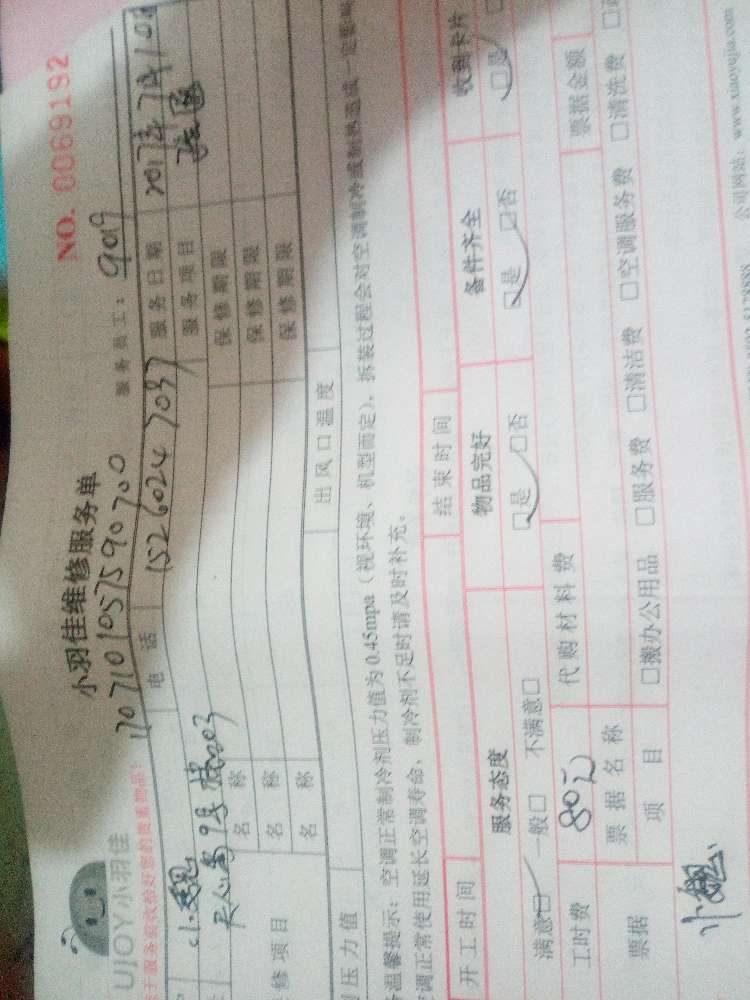 NO. 0069192
小羽佳维修服务单
服务员工：9019
UJOY小羽佳
170710105759 0700
电 话 15260247037 服务日期 2017年7月10日
服务项目
保修期限
名 称 保修期限
名 称 保修期限
名 称
修项目
压力值 出风口温度
温馨提示：空调正常制冷剂压力值为0.45mpa（视环境、机型而定），拆装过程会对空调制冷或制热造成一定影响
调正常使用延长空调寿命，制冷剂不足时请及时补充。
开工时间 结束时间
服务态度 物品完好 备件齐全 收到卡片
满意□ 一般□ 不满意□ □是 □否 □是 □否 □是
工时费 80元 代购材料费
票据 票据名称 票据金额
项 目 □搬办公用品 □服务费 □清洁费 □空调服务费 □清洗费
公司网站：www.xiaoyujia.com